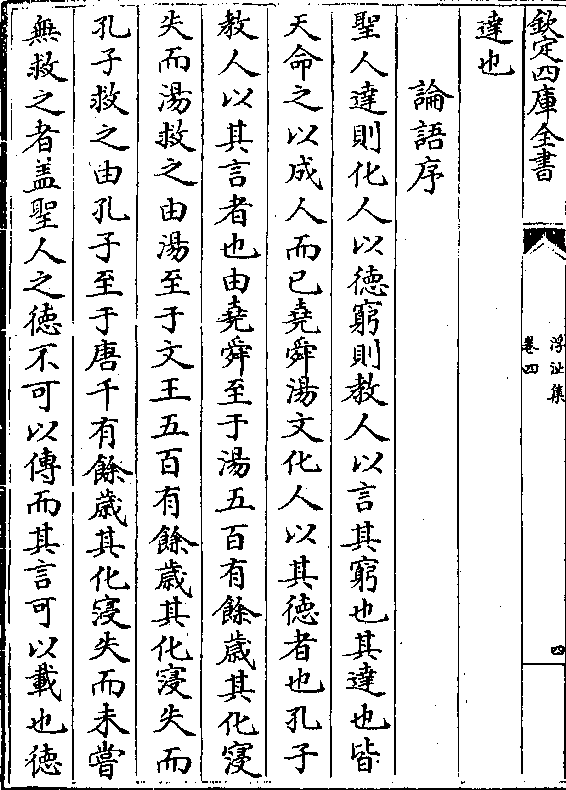 欽定四庫全書
浮沚集
卷四
四
達也
論語序
聖人達則化人以德窮則教人以言其窮也其達也皆
天命之以成人而已堯舜湯文化人以其德者也孔子
教人以其言者也由堯舜至于湯五百有餘歲其化寖
失而湯救之由湯至于文王五百有餘歲其化寖失而
孔子救之由孔子至于唐千有餘歲其化寖失而未嘗
無救之者盖聖人之徳不可以傳而其言可以載也徳